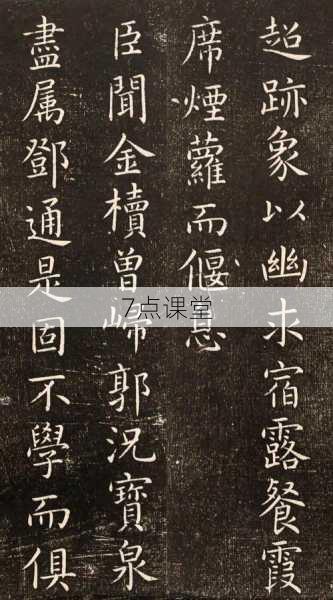 超跡象以幽求宿露餐霞
席煙蘿而偃息
臣聞金櫝曾歸郭況寶泉
盡属鄧通是固不學而俱
7点课堂